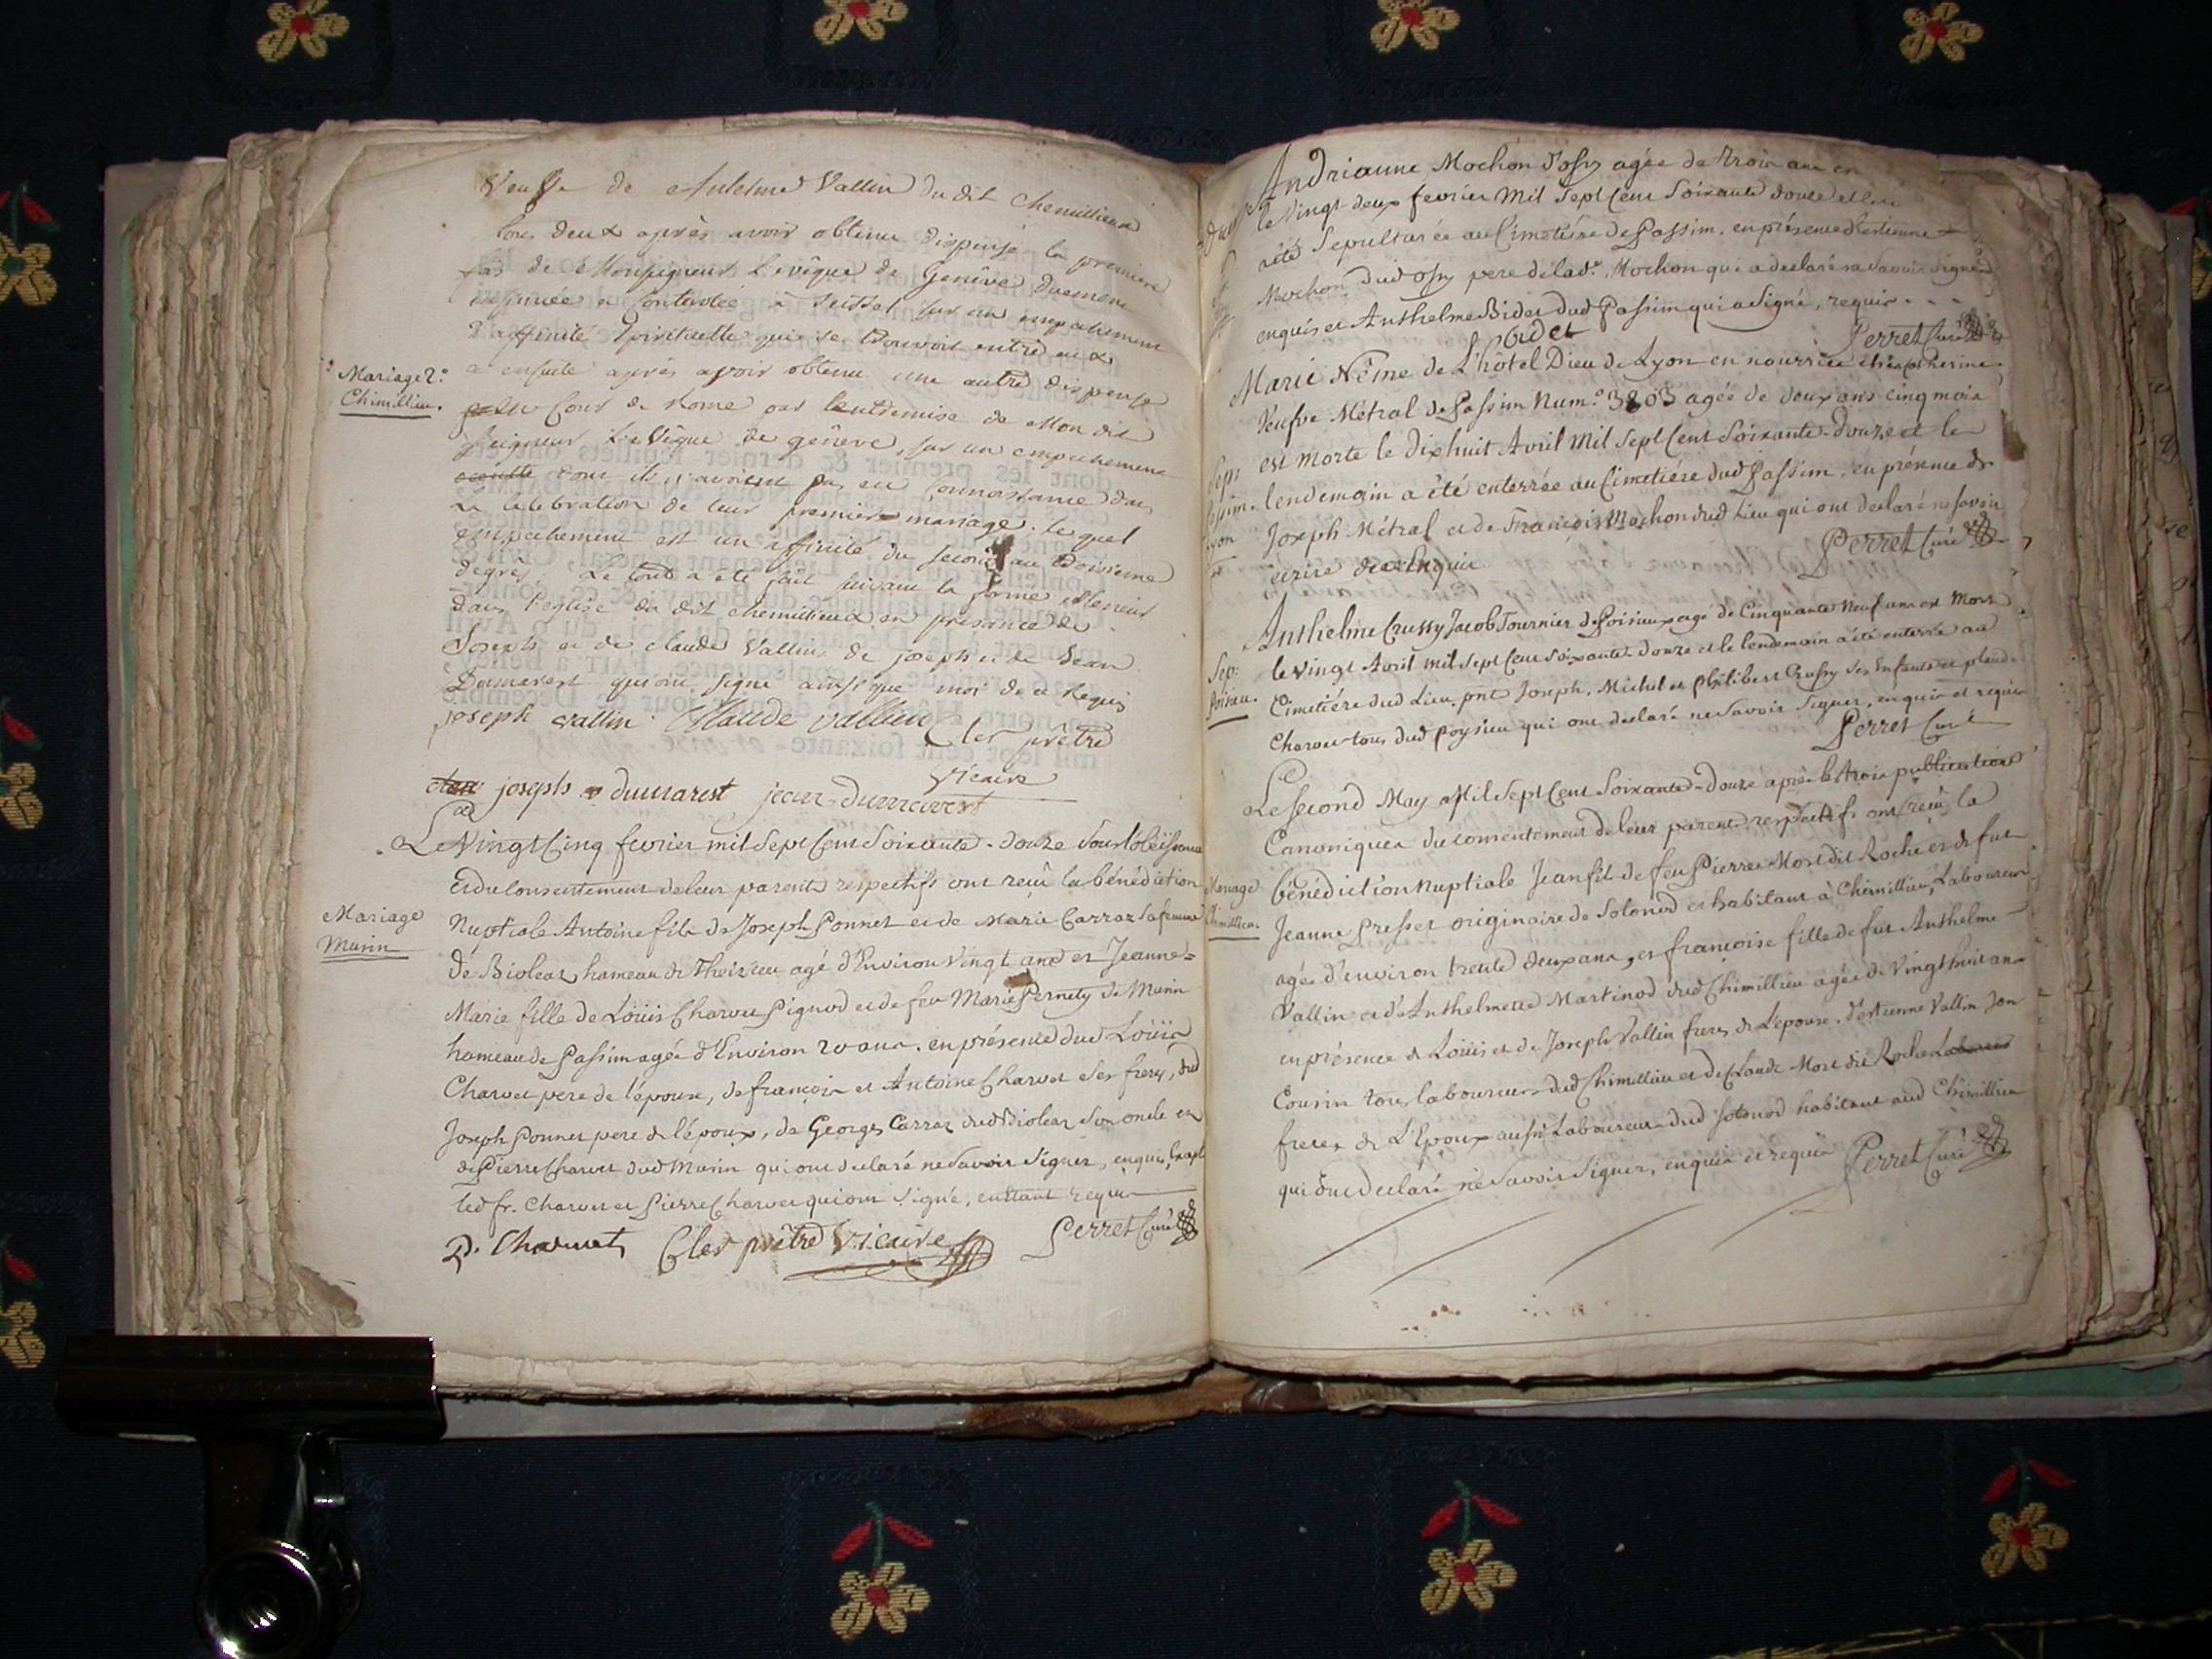 Veuve de Anthelme Vallin du dit Chemillieux
tous deux après avoir obtenu dispense la premiere
fois de Monseigneur L'evêque de Genêve duement
insinuée et Controlée à Seissel sur un empechement
d'affinité Spirituelle qui se trouvoit entre eux
Mariage 2.º
a ensuite après avoir obtenu une autre dispense
Chimillieu.
Cour de Rome par l'entremise de Mon dit
Seigneur L'evêque de genêve, sur un empechement
dont ils n'avoient pas eu Connoissance dans
la Celebration de leur premier mariage. le quel
empechement est un affinité du second au troisieme
degrès. Le tout a été fait suivant la forme
dans l'eglise du dit chemillieux en presance de
Joseph et de claude Vallin de joseph et de Jean
Dumarest qui ont signé ainsi que moi de ce Requis
joseph vallin Claude vallin Cler prêtre
vicaire
joseph dumarest jean dumarest
Le Vingt Cinq fevrier mil Sept Cent Soixante-douze sous l'obéissance
et du Consentement de leur parents respectifs ont reçû la bénédiction
Mariage
Nuptiale Antoine fils de Joseph Ponnet et de Marie Carraz sa femme
Murin
de Bioleaz hameau de Theizieu agé d'Environ Vingt ans et Jeanne=
Marie fille de Loüis Charvet Pignod et de feu Marie Pernety de Murin
hameau de Passim agée d'Environ 20 ans. en présence dud Loüis
Charvet pere de l'épouse, de françois et Antoine Charvet ses freres, dud
Joseph Ponnet pere de l'époux, de Georges Carraz dud Bioleaz son oncle et
de Pierre Charvet dud Murin qui ont declaré ne Savoir Signer, enquis, Except
led fr. Charvet et Pierre Charvet qui ont signé, enetant requis
P. Charvet Cler prêtre vicaire Perret Curé
Andrianne Mochon d'ossy agée de trois ans en
le Vingt deux fevrier Mil Sept Cent Soixante douze et
eté Sepulturée au Cimetiére de Passim, en présence d'estienne
Mochon dud ossy pere de lad.e Mochon qui a declaré ne Savoir Signer
enquis et Anthelme Bidet dud Passim qui a Signé, requis
bidet Perret Curé
Marie Nême de L'hôtel Dieu de Lyon en nourrice chés Catherine
Veufve Métral de Passim Num.º 3803 agée de deux ans cinq mois
Sep:
est morte le Dixhuit Avril Mil Sept Cent Soixante-Douze et le
passim.
lendemain a été enterrée au Cimetiére dud Passim, en présence de
Lyon
Joseph Métral et de François Mochon dud Lieu qui ont declaré ne savoir
écrire de ce Enquis Perret Curé
Anthelme Crussy Jacob Tournier de Poisieux agé de Cinquante Neuf ans est Mort
Sep:
le vingt Avril mil Sept Cent Soixante-Douze et le lendemain a été enterré au
Poisieu.
Cimetiére dud Lieu, pnt Joseph, Michel et Philibert Crussy ses Enfants et
Charvet tous dud Poysieu qui ont declaré ne Savoir Signer, enquis et requis
Perret Curé
Le Second May Mil Sept Cent Soixante-Douze après les trois publications
Canoniques du consentement de leur parents respectifs ont reçû la
Mariage
bénédiction Nuptiale Jean fils de feu Pierre Mort dit Roche et de fut
Chimillieu
Jeanne Presset originaire de Sotonod et habitant à Chimillieu, Laboureur
agé d'environ trente deux ans, et françoise fille de fut Anthelme
Vallin et d'Anthelmette Martinod dud Chimillieu agée de Vingt huit ans
en présence de Loüis et de Joseph Vallin freres de L'epouse, d'estienne Vallin Son
Cousin tous laboureurs dud Chimillieu et de Claude Mort dit Roche
freres de L'Epoux aussi Laboureur dud Sotonod habitant aud Chimillieu
qui ont declaré ne Savoir Signer, enquis et requis Perret Curé